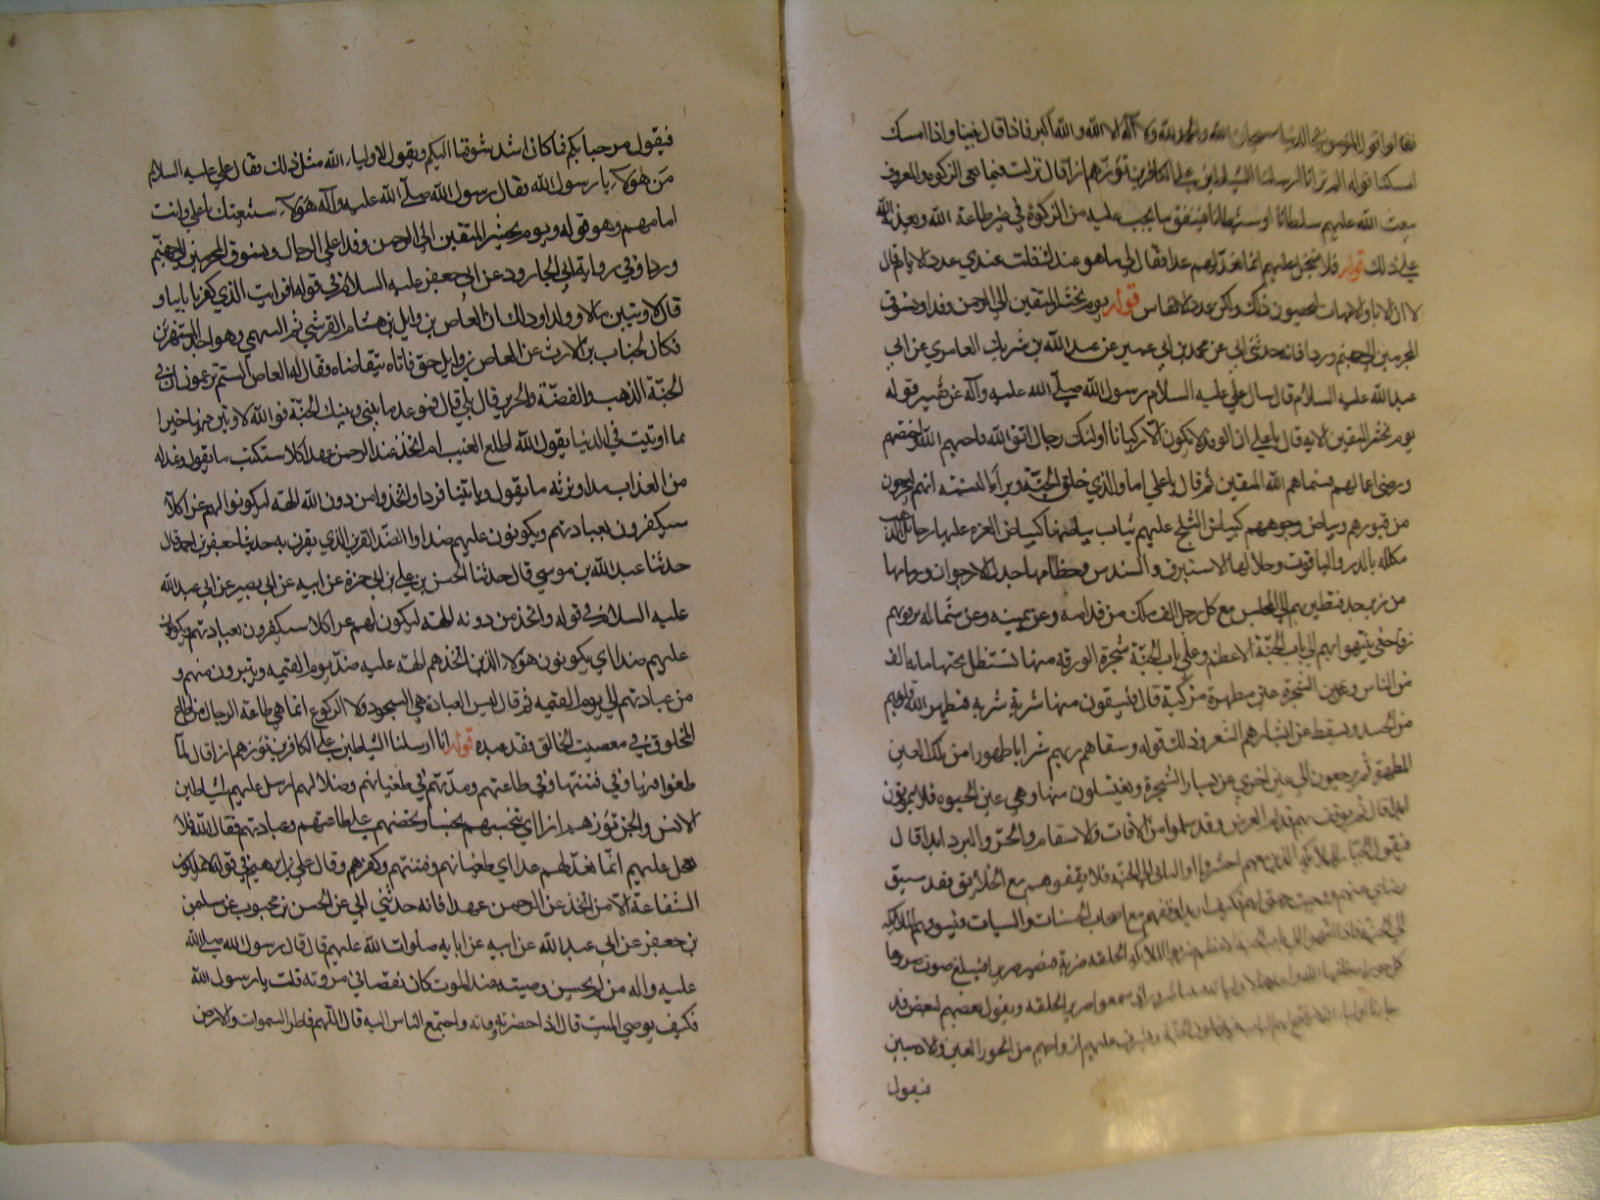 فقالوا قول المؤمن في الدنيا سبحان الله والحمد لله ولا اله الا الله والله اكبر فاذا قال بنينا واذا امسك
امسكنا قوله الم تر انا ارسلنا الشياطين على الكافرين تؤزهم ازا قال نزلت في مانعي الزكوة والمعروف
يبعث الله عليهم سلطانا او شيطانا فينفق ما يجب عليه من الزكوة في غير طاعة الله ويعذبه الله
على ذلك قوله فلا تعجل عليهم انما نعد لهم عدا فقال لي ما هو عندك قلت عندي عدد الايام قال
لا ان الاباء والامهات يحصون ذلك ولكن عدد الانفاس قوله يوم نحشر المتقين الى الرحمن وفدا ونسوق
المجرمين الى جهنم وردا فانه حدثني ابي عن محمد بن ابي عمير عن عبد الله بن شريك العامري عن ابي
عبد الله عليه السلام قال سال علي عليه السلام رسول الله صلى الله عليه وآله عن تفسير قوله
يوم نحشر المتقين الاية قال يا علي ان الوفد لا يكون الا ركبانا اولئك رجال اتقوا الله فاحبهم الله واختصهم
ورضى اعمالهم فسماهم الله المتقين ثم قال يا علي اما والذي خلق الحبة وبرأ النسمة انهم ليخرجون
من قبورهم وبياض وجوههم كبياض الثلج عليهم ثياب بياضها كبياض
مكلله بالدر والياقوت وجلالها الاستبرق والسندس وخطامها جدل الارجوان وزمامها
من زبرجد فتطير بهم الى المجلس مع كل رجل الف ملك من قدامه وعن يمينه وعن شماله يزفونهم
زفا حتى ينتهوا بهم الى باب الجنة الاعظم وعلى باب الجنة شجرة الورقة منها تستظل تحتها مائة الف
من الناس وعن يمين الشجرة عين مطهرة مزكية قال فيسقون منها شربة شربة فيطهر الله قلوبهم
من الحسد ويسقط عن ابشارهم الشعر وذلك قوله وسقاهم ربهم شرابا طهورا من تلك العين
المطهرة ثم يرجعون الى عين اخرى عن يسار الشجرة ويغتسلون منها وهي عين الحيوة فلا يموتون
ابدا قال ثم يوقف بهم قدام العرش وقد سلموا من الآفات والاسقام والحر والبرد ابدا قال
فيقول الجبار للملائكة الذين معهم احشروا اوليائي الى الجنة فلا تقفوهم مع الخلائق فقد سبق
رضاي عنهم ووجبت رحمتي لهم فكيف اريد ان اوقفهم مع اصحاب الحسنات والسيات فتسوقهم الملائكة
الى الجنة فاذا انتهوا الى باب الجنة ضرب الملائكة الحلقه ضربة فتصر صريرا فيبلغ صوت صريرها
كل حوراء سمعوا صرير الحلقه ويقول بعضهم لبعض قد
جاءنا اولياء الله عليهم ازواجهم من الحور العين والادميين
فيقول
فيقول مرحبا بكم فما كان اشد شوقنا اليكم ويقول لاولياء الله مثل ذلك وقال علي عليه السلام
من هؤلاء يا رسول الله فقال رسول الله صلى الله عليه وآله هؤلاء شيعتك يا علي وانت
امامهم وهو قوله ويوم نحشر المتقين الى الرحمن وفدا على الرحال ونسوق المجرمين الى جهنم
وردا وفي رواية ابي الجارود عن ابي جعفر عليه السلام في قوله افرايت الذي كفر باياتنا و
قال لاوتين مالا وولدا وذلك ان العاص بن وايل بن هشام القرشي ثم السهمي وهو احد المستهزئين
فكان لخباب بن الارث عن العاص بن وايل حق فاتاه يتقاضاه فقال له العاص الستم تزعمون ان في
الجنة الذهب والفضة والحرير قال بلى قال فموعد ما بيني وبينك الجنة فوالله لاوتين فيها خيرا
مما اوتيت في الدنيا يقول الله اطلع الغيب ام اتخذ عند الرحمن عهدا كلا سنكتب ما يقول ونمد له
من العذاب مدا ونرثه ما يقول وياتينا فردا واتخذوا من دون الله الهة ليكونوا لهم عزا كلا
سيكفرون بعبادتهم ويكونون عليهم ضدا والضد القرين الذي يقرن به حدثنا جعفر بن احمد قال
حدثنا عبد الله بن موسى قال حدثنا الحسن بن علي بن ابي حمزة عن ابيه عن ابي بصير عن ابي عبد الله
عليه السلام في قوله واتخذ من دونه الهة ليكون لهم عزا كلا سيكفرون بعبادتهم ويكونون
عليهم ضدا اي يكونون هؤلاء الذين اتخذهم الهة عليه ضد يوم القيمه ويتبرون منهم و
من عبادتهم الى يوم القيمه ثم قال ليس العبادة هي السجود ولا الركوع انما هي طاعة الرجال من اطاع
المخلوق في معصيت الخالق فقد عبده قوله انا ارسلنا الشياطين على الكافرين تؤزهم ازا قال لما
طغوا فيها وفي فتنتها وفي طاعتهم ومدهم في طغيانهم وضلالهم ارسل عليهم شياطين
الانس والجن تؤزهم ازا اي تنخسهم نخسا وتحضهم على طاعتهم وعبادتهم فقال الله فلا
تعجل عليهم انما نعد لهم عدا اي طغيانهم وفتنتهم وكفرهم وقال علي بن ابرهيم في قوله لا يملكون
الشفاعة الا من اتخذ عند الرحمن عهدا فانه حدثني ابي عن الحسن بن محبوب عن سليمن
بن جعفر عن ابي عبد الله عن ابيه عن ابايه صلوات الله عليهم قال قال رسول الله صلى الله
عليه واله من لم يحسن وصيته عند الموت كان نقصا في مروته قلت يا رسول الله
فكيف يوصي الميت قال اذا حضرته وفاته واجتمع الناس اليه قال اللهم فاطر السموات والارض